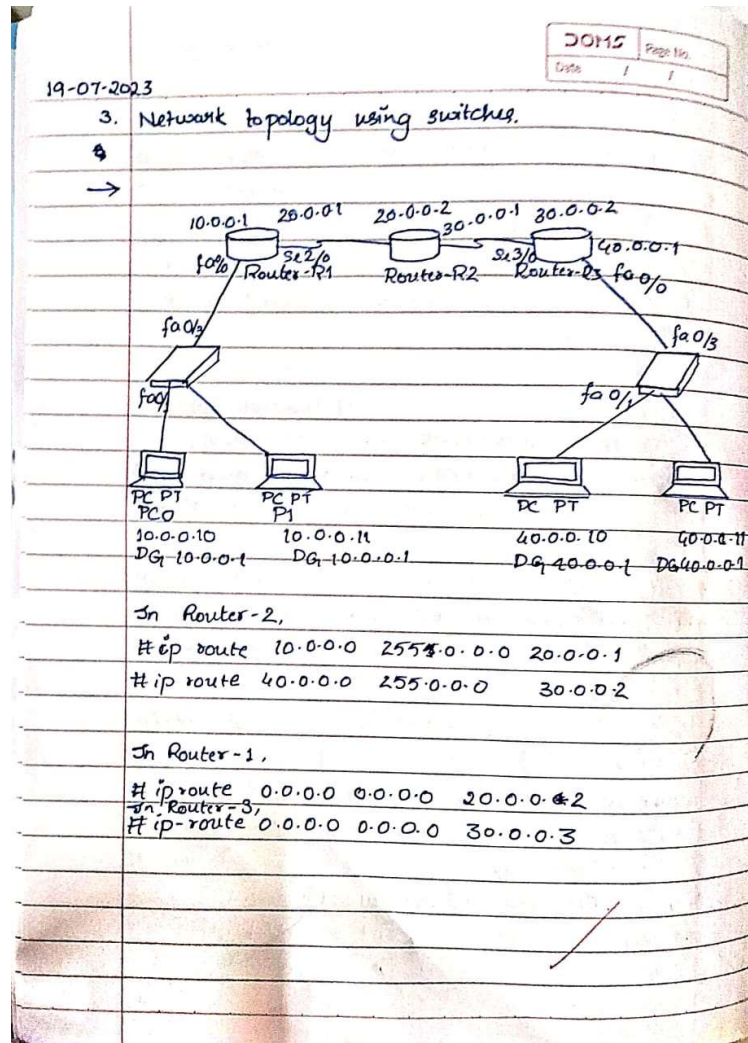 DOMS Page No.
Date / /
19-07-2023
3. Network topology using switches.
→
10.0.0.1 20.0.0.1 20.0.0.2 30.0.0.1 30.0.0.2
40.0.0.1
Se2/0 Se3/0
Router-R1 Router-R2 fa0/0
fa0/3 fa0/3
fa0/1 fa0/1
PC PT PC PT PC PT PC PT
PC0 P1
10.0.0.10 10.0.0.11 40.0.0.10 40.0.0.11
DG 10.0.0.1 DG 10.0.0.1 DG 40.0.0.1 DG 40.0.0.1
In Router-2,
# ip route 10.0.0.0 255.0.0.0 20.0.0.1
# ip route 40.0.0.0 255.0.0.0 30.0.0.2
In Router-1,
# ip route 0.0.0.0 0.0.0.0 20.0.0.2
In Router-3,
# ip-route 0.0.0.0 0.0.0.0 30.0.0.3